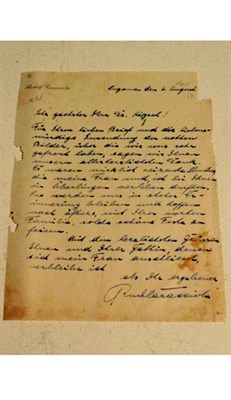 Lugano den 6. August
Sehr geehrter Herr Dr.
Für Ihren lieben Brief und die liebens-
würdige Zusendung der netten
Bilder, über die wir uns sehr
gefreut haben, sagen wir Ihnen
unsern allerherzlichsten Dank.
Es waren wirklich reizende Stunden,
die meine Frau und ich bei Ihnen
in Überlingen verleben durften.
Sie werden uns in steter Er-
innerung bleiben und hoffe
noch öfters, mit Ihrer werten
Familie, solche schöne Feste zu
feiern.
Mit den herzlichsten Grüssen
Ihnen und Ihrer Gattin, denen
sich meine Frau anschliesst,
verbleibe ich
als Ihr ergebener